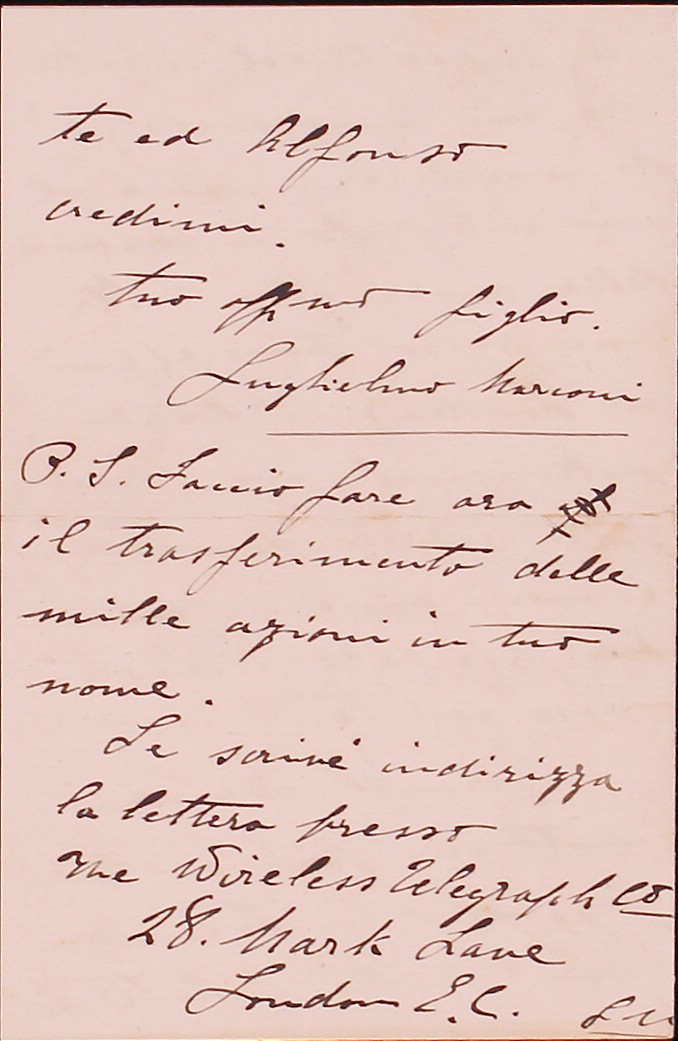 te ed Alfonso
credimi.
tuo affmo figlio.
Guglielmo Marconi
P. S. Faccio fare ora
il trasferimento delle
mille azioni in tuo
nome.
Se scrivi indirizza
la lettera presso
The Wireless Telegraph Co
28. Mark Lane
London E.C.
G M